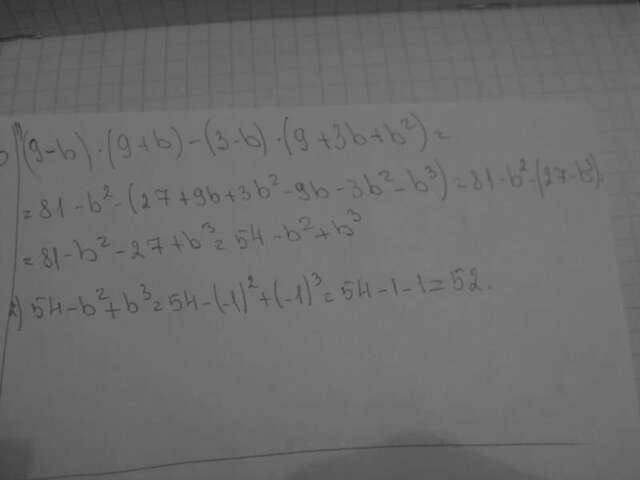 1) (9-b)·(9+b)-(3-b)·(9+3b+b²)=
=81-b²-(27+9b+3b²-9b-3b²-b³)=81-b²-(27-b³)=
=81-b²-27+b³=54-b²+b³
2) 54-b²+b³=54-(-1)²+(-1)³=54-1-1=52.